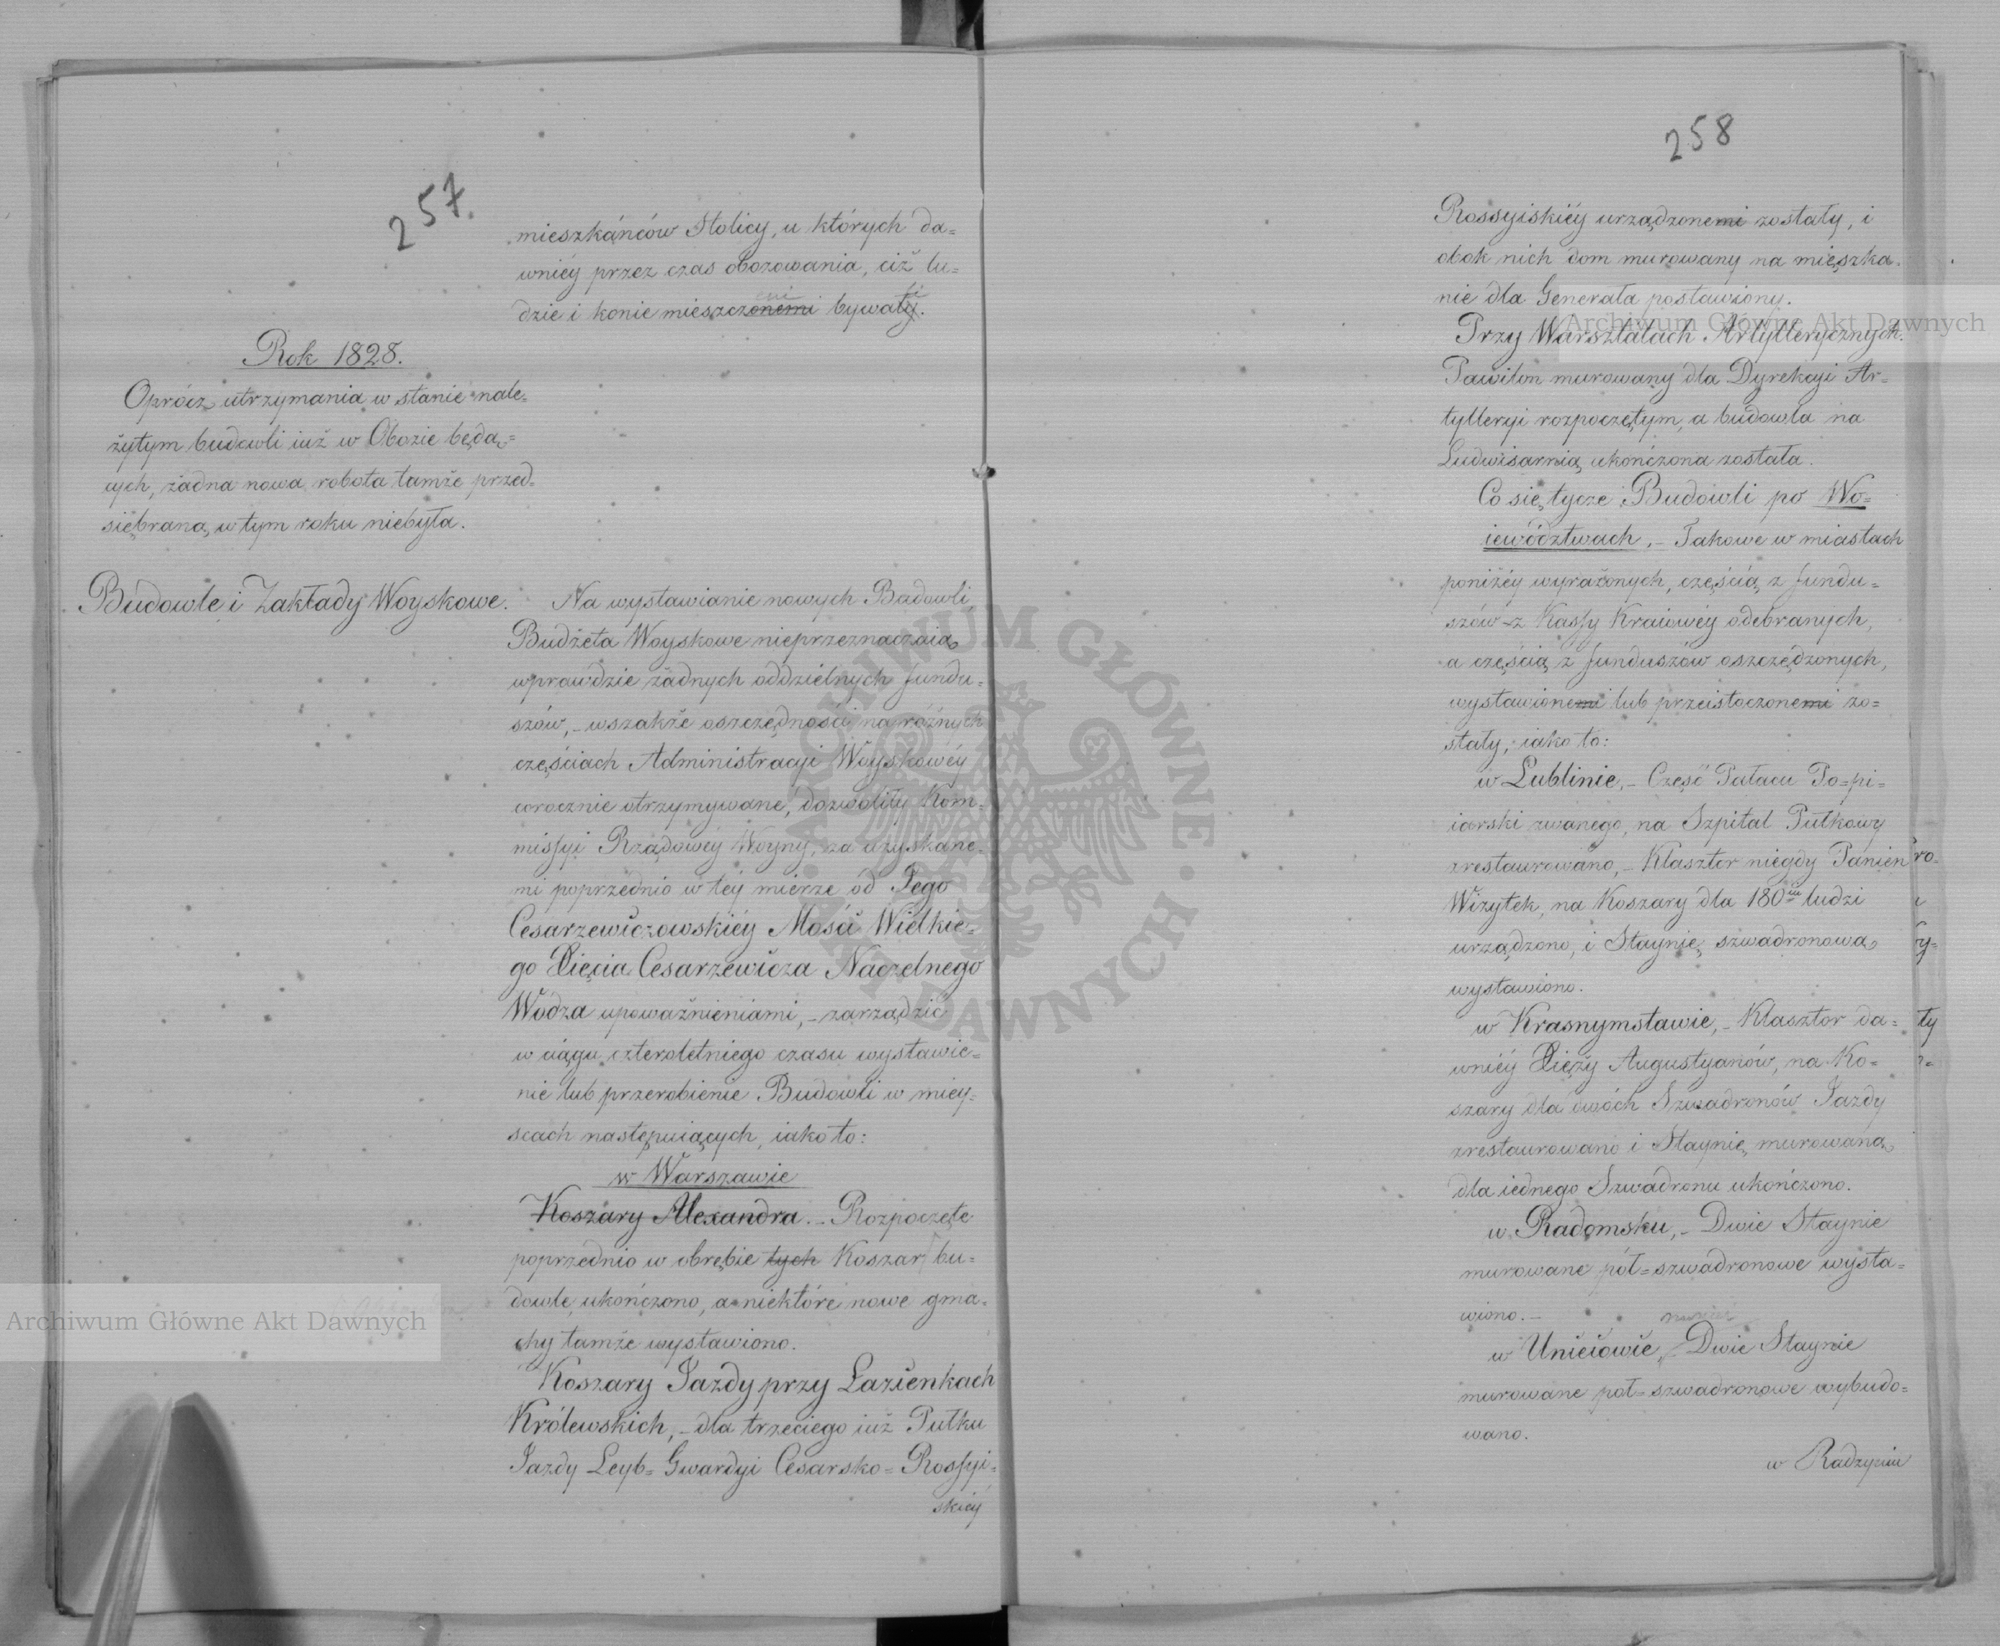 257.
mieszkańców Stolicy, u których da=
wniéy przez czas obozowania, ciż lu=
dzie i konie mieszczonemi bywały.
Rok 1828.
Oprócz utrzymania w stanie nale=
żytym budowli iuż w Obozie będą=
cych, żadna nowa robota tamże przed=
siębraną w tym roku niebyła.
Budowle i Zakłady Woyskowe.
Na wystawianie nowych Budowli
Budżeta Woyskowe nieprzeznaczaią
wprawdzie żadnych oddzielnych fundu=
szów, – wszakże oszczędności na różnych
częściach Administracyi Woyskowéy
corocznie otrzymywane, dozwoliły Kom=
missyi Rządowéy Woyny, za uzyskane=
mi poprzednio w téy mierze od Jego
Cesarzewiczowskiéy Mości Wielkie=
go Xięcia Cesarzewicza Naczelnego
Wodza upoważnieniami, – zarządzić
w ciągu czteroletniego czasu wystawie=
nie lub przerobienie Budowli w miey=
scach następuiących, iako to:
w Warszawie
Koszary Alexandra. – Rozpoczęte
poprzednio w obrębie tych Koszar bu=
dowle, ukończono, a niektóre nowe gma=
chy tamże wystawiono.
Koszary Jazdy przy Łazienkach
Królewskich, – dla trzeciego iuż Pułku
Jazdy Leyb= Gwardyi Cesarsko= Rossyi=
skiéy
258
Rossyiskiéy urządzonemi zostały, i
obok nich dom murowany na mieszka=
nie dla Generała postawiony.
Przy Warsztatach Artyllerycznych.
Pawilon murowany dla Dyrekcyi Ar=
tylleryi rozpoczętym, a budowla na
Ludwisarnią ukończona została.
Co się tycze Budowli po Wo=
iewództwach, – Takowe w miastach
poniżéy wyrażonych, częścią z fundu=
szów z Kassy Kraiowéy odebranych,
a częścią z funduszów oszczędzonych,
wystawionemi lub przeistoczonemi zo=
stały, iako to:
w Lublinie, – Część Pałacu Po=pi=
iarski zwanego, na Szpital Pułkowy
zrestaurowano, – Klasztor niegdy Panien
Wizytek, na Koszary dla 180iu ludzi
urządzono, i Staynię szwadronową
wystawiono.
w Krasnymstawie, – Klasztor da=
wniéy Xięży Augustyanów, na Ko=
szary dla dwóch Szwadronów Jazdy
zrestaurowano i Staynię murowaną
dla iednego Szwadronu ukończono.
w Radomsku, – Dwie Staynie
murowane pół=szwadronowe wysta=
wiono. –
w Unieiowie, – Dwie Staynie
murowane pół=szwadronowe wybudo=
wano.
w Radzyniu
Archiwum Główne Akt Dawnych
Archiwum Główne Akt Dawnych
ARCHIWUM GŁÓWNE AKT DAWNYCH